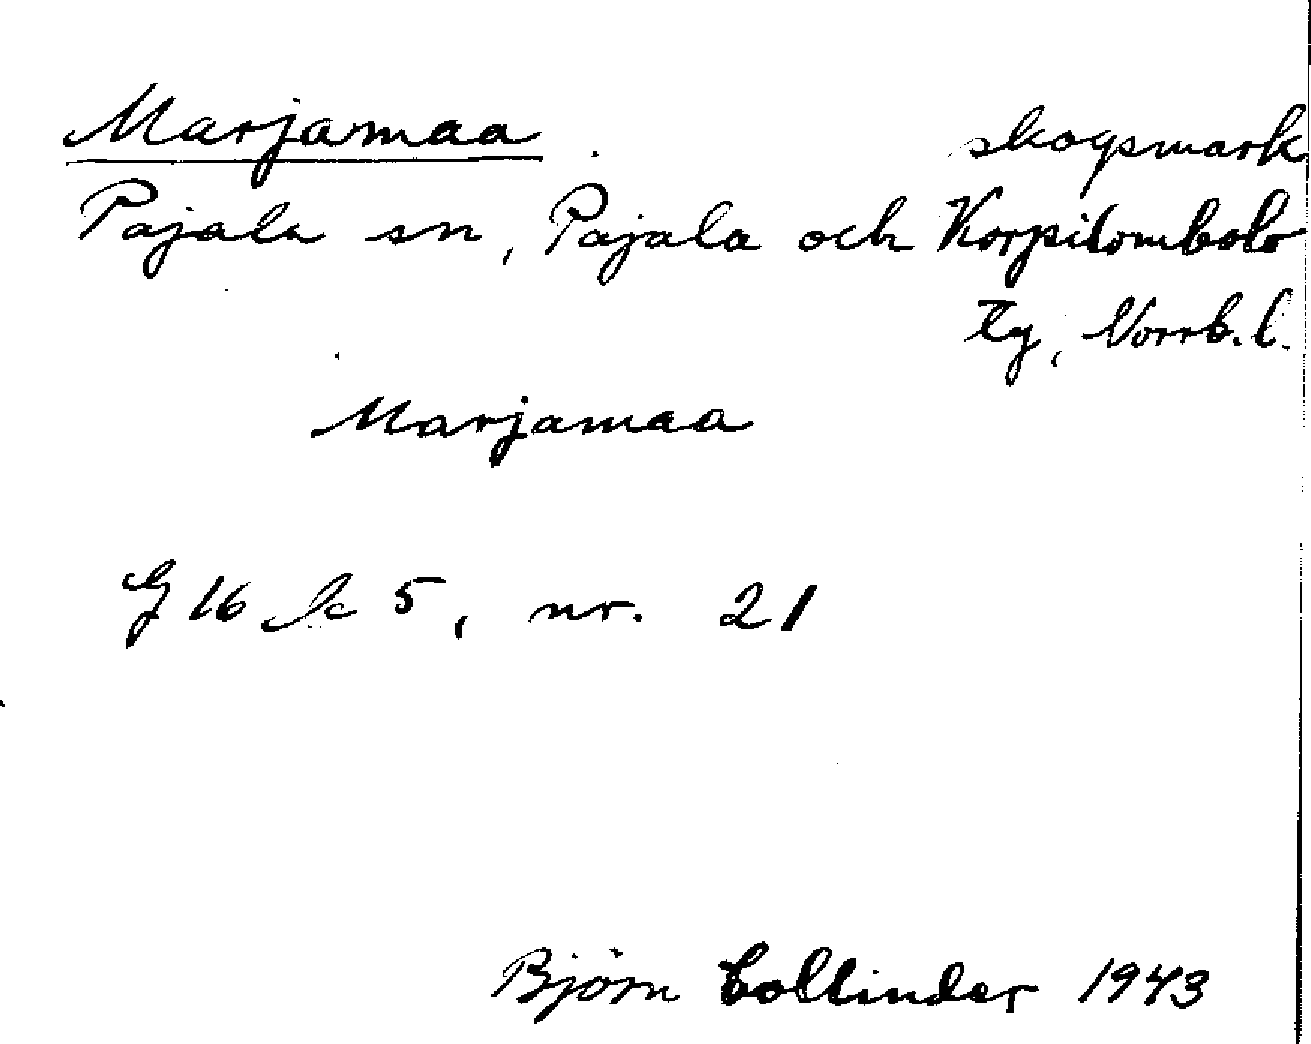 Marjamaa skogsmark
Pajala sn, Pajala och Korpilombolo
tg, Norrb. l.
Marjamaa
G 16 k 5, nr. 21
Björn Collinder 1943